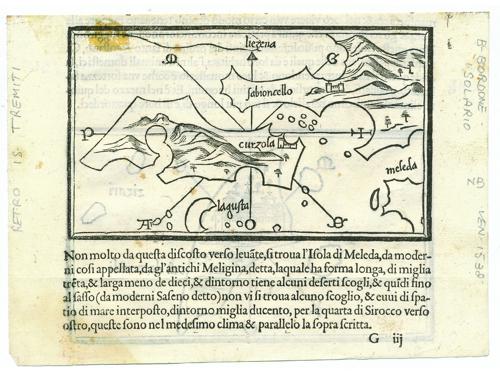 liezena
M
G
L
sabioncello
P
H
curzola
meleda
lagusta
A
O
Non molto da questa discosto verso leuāte, si troua l'Isola di Meleda, da moder-
ni cosi appellata, da gl'antichi Meligina, detta, laquale ha forma longa, di miglia
trēta, & larga meno de dieci, & dintorno tiene alcuni deserti scogli, & quīdi fino
al sasso (da moderni Saseno detto) non vi si troua alcuno scoglio, & euui di spa-
tio di mare interposto, dintorno miglia ducento, per la quarta di Sirocco verso
ostro, queste sono nel medesimo clima & parallelo la sopra scritta.
G iij
RETRO IS TREMITI
B. BORDONE
ISOLARIO
VEN. 1538